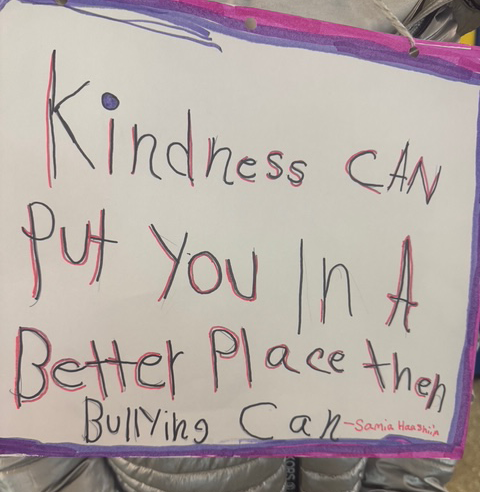 Kindness CAN
Put You In A
Better Place then
Bullying Can -Samia Haashiim